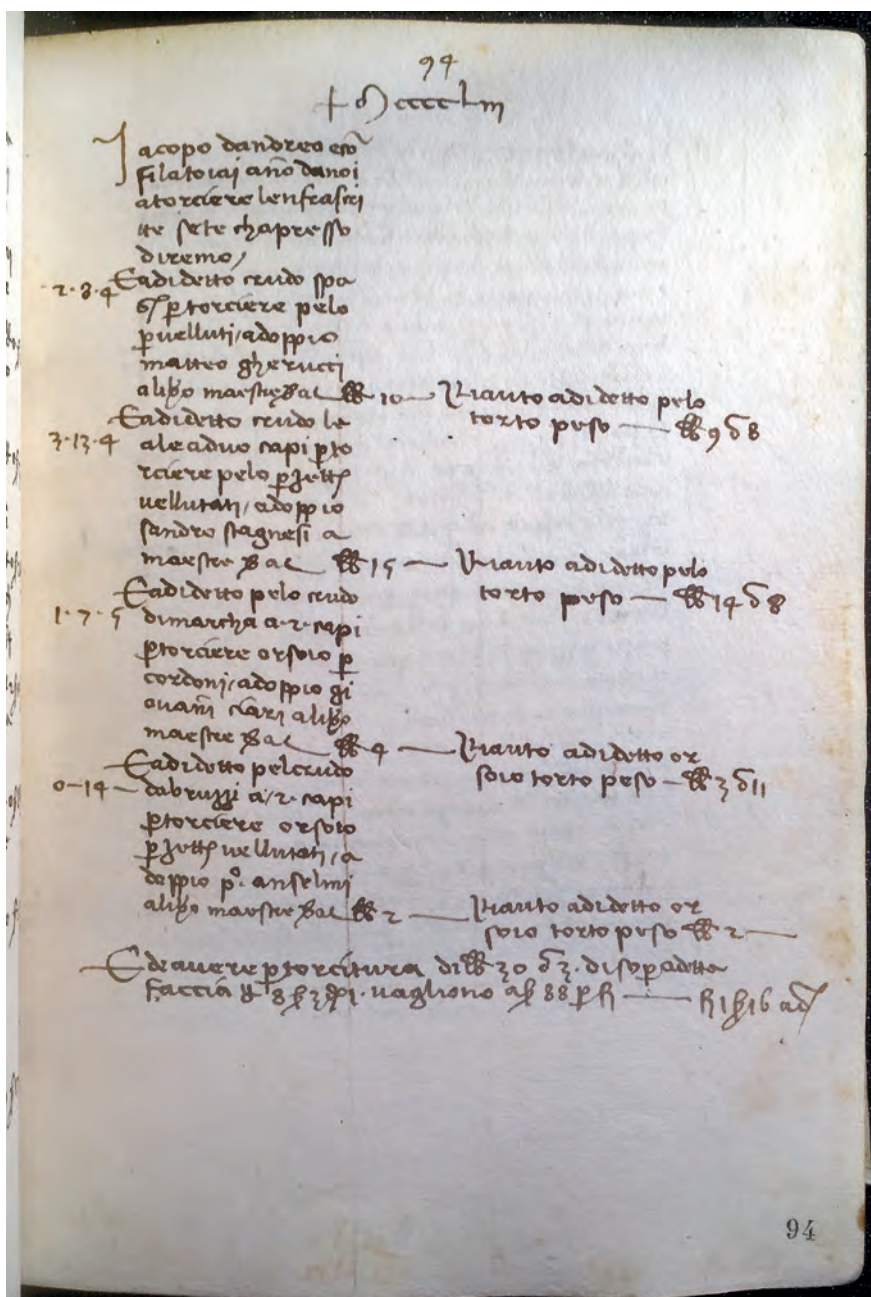 94
+ M cccc Liii
Jacopo dandreo e cō
filatoiai āno da noi
a torciere lenfrascri
tte sete chapresso
diremo /
E adidetto crudo spa
2·8·4
p torciere pelo
p velluti / adoppio
matteo gherucci
maestre Bal lb 10 — Rianto adidetto pelo
torto peso — lb 9 δ 8
E adidetto crudo le
3·13·4 ale aduo capi p to
rciere pelo p zett
vellutati / adoppio
sandro stagnesi a
maestre Bal lb 15 — Rianto adidetto pelo
torto peso — lb 14 δ 8
E adidetto pelo crudo
1·7·5 dimarcha a·2·capi
p torciere orsoio p
cordoni / adoppio gi
ovani ciari
maestre Bal lb 4 — Rianto adidetto or
soio torto peso — lb 3 δ 11
E adidetto pel crudo
0–14 — dabruzzi a /2· capi
p torciere orsoio
p zett vellutati / a
doppio p°. anselmi
maestre Bal lb 2 — Rianto adidetto or
soio torto peso lb 2 —
E de avere p torcitura di lb 30 δ 3· di sop adetta
faccia 8 3 1· vagliono 88 p — 1 16
94